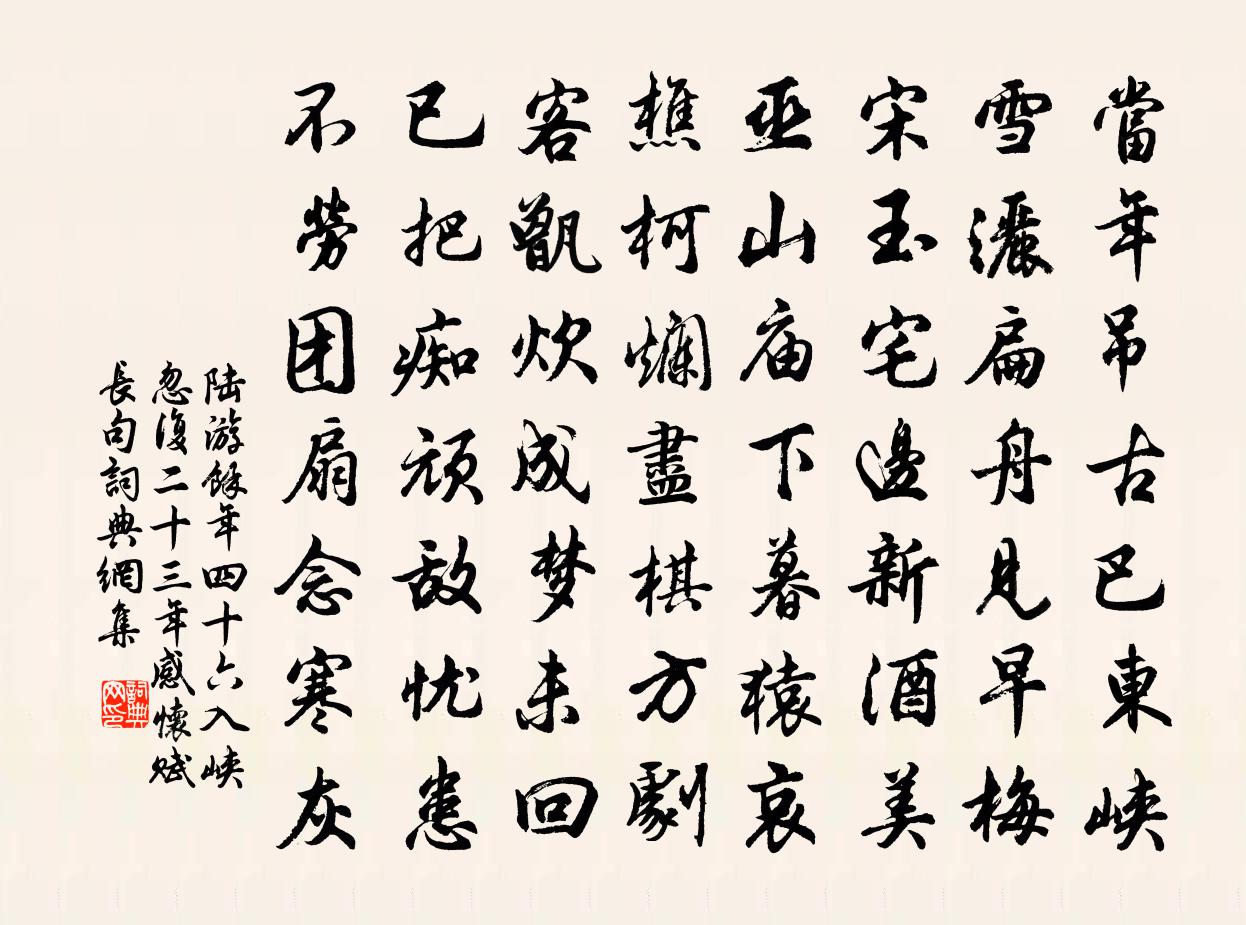 當年吊古巴東峽
雪灑扁舟見早梅
宋玉宅邊新酒美
巫山庙下暮猿哀
樵柯爛盡棋方劇
客甑炊成梦未回
已把痴頑敌忧患
不勞团扇念寒灰
陆游餘年四十六入峽
忽復二十三年感懷赋
長句詞典網集
詞典网印